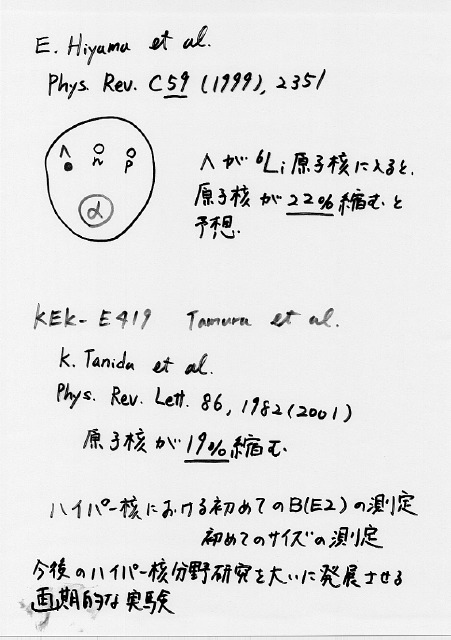 E. Hiyama et al.
Phys. Rev. C59 (1999), 2351
Λ n p
α
Λが ⁶Li原子核に入ると、
原子核が22%縮むと
予想.
KEK-E419 Tamura et al.
K. Tanida et al.
Phys. Rev. Lett. 86, 1982(2001)
原子核が19%縮む.
ハイパー核における初めてのB(E2)の測定
初めてのサイズの測定
今後のハイパー核分野研究を大いに発展させる
画期的な実験